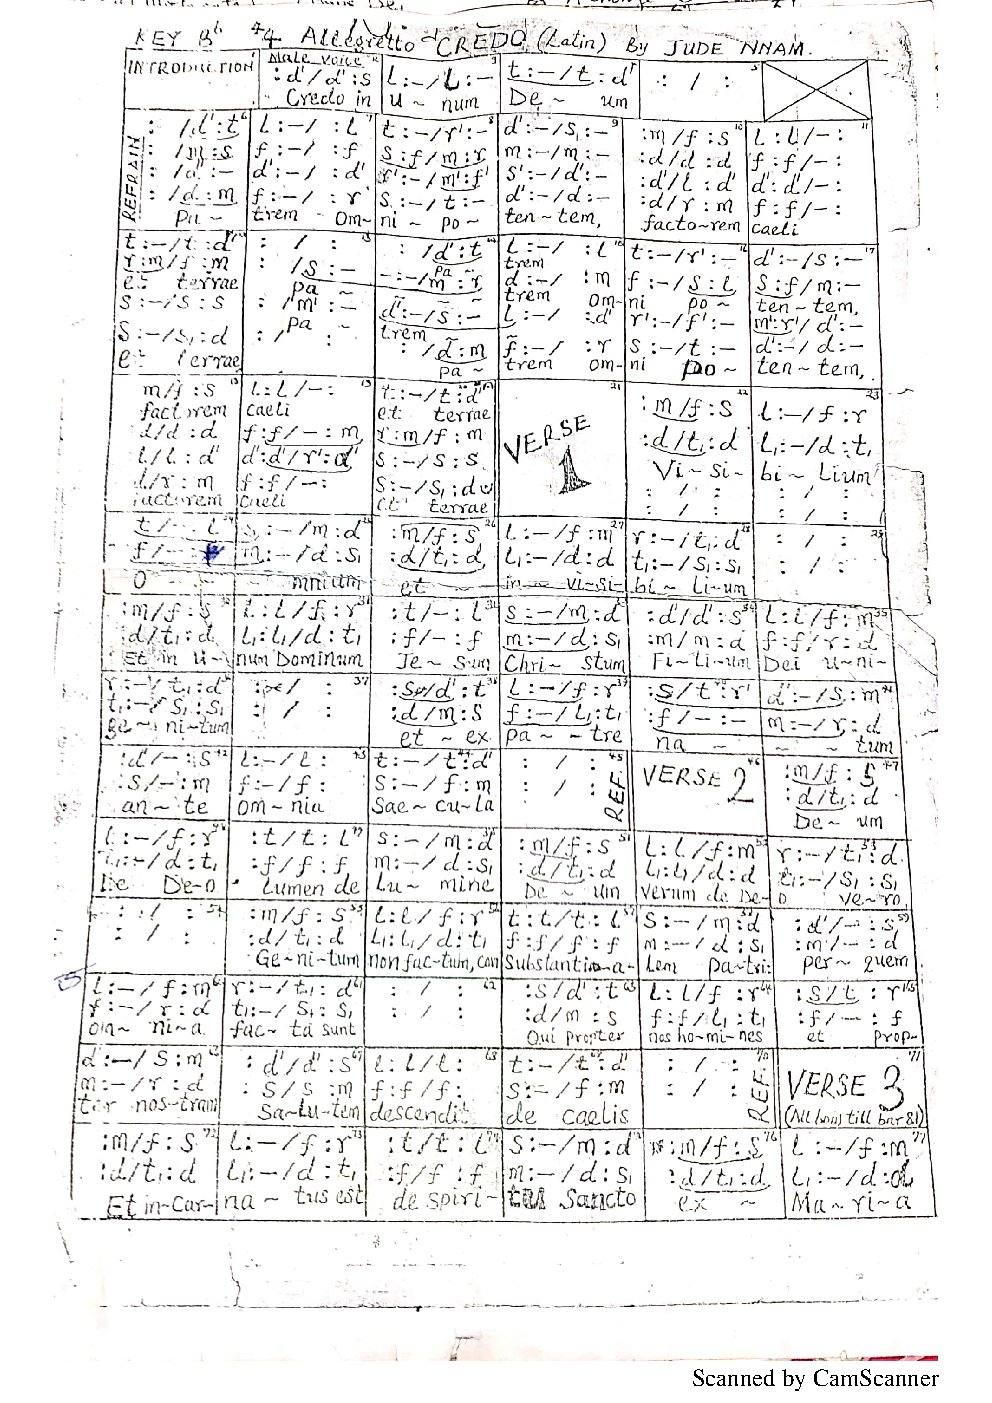 KEY Bb 4/4 Allegretto CREDO (Latin) By JUDE NNAM.
INTRODUCTION 1
Male Voice 2
:d'/d':s
Credo in
l:-/l:- 3
u ~ num
t:-/t:d' 4
De ~ um
: / : 5
REFRAIN
: /d':t 6
: /m:s
: /d':-
: /d:m
Pa ~
l:-/ :l 7
f:-/ :f
d':-/ :d'
f:-/ :r
trem Om~
t:-/r':- 8
s:f/m:r
r':-/m':f'
s:-/t:-
ni ~ po ~
d':-/s:- 9
m:-/m:-
s':-/d':-
d':-/d:-
ten~tem,
:m/f:s 10
:d/d:d
:d'/l:d'
:d/r:m
facto~rem
l:l/-: 11
f:f/-:
d':d'/-:
f:f/-:
caeli
t:-/t:d'
r:m/f:m
et terrae
s:-/s:s
s:-/s₁:d
et terrae
: / : 13
: /s:-
pa ~
: /m':-
pa ~
: / :
: /d':t 14
pa ~
-:-/m:r
d':-/s:-
trem
: /d:m
pa ~
l:-/ :l 15
trem
d:-/ :m
trem om~
l:-/ :d'
f:-/ :r
trem om~
t:-/r':- 16
f:-/s:l
ni po ~
r':-/f':-
s:-/t:-
ni po ~
d':-/s:- 17
s:f/m:-
ten~tem,
m':r'/d':-
d':-/d:-
ten~tem,
m/f:s
factorem
d/d:d
l/l:d'
d/r:m
factorem
l:l/-: 19
caeli
f:f/-:m
d':d'/r':d'
f:f/-:
caeli
t:-/t:d'
et terrae
r:m/f:m
s:-/s:s
s:-/s₁:d
et terrae
21
VERSE
1
:m/f:s 22
:d/t₁:d
Vi~si~
: / :
: / :
l:-/f:r 23
l₁:-/d:t₁
bi~Lium
: / :
: / :
t/-:l 24
f/-:
O
s:-/m:d 25
m:-/d:s₁
mnium
:m/f:s 26
:d/t₁:d
et ~
l:-/f:m 27
l₁:-/d:d
in ~ vi~si~
r:-/t₁:d 28
t₁:-/s₁:s₁
bi~Li~um
: / : 29
: / :
:m/f:s 30
:d/t₁:d
Et in u~
l:l/f:r 31
l₁:l₁/d:t₁
num Dominum
:t/-:l 32
:f/-:f
Je~sum
s:-/m:d 33
m:-/d:s₁
Chri~stum
:d'/d':s 34
:m/m:d
Fi~Li~um
l:l/f:m 35
f:f/r:d
Dei u~ni~
r:-/t₁:d 36
t₁:-/s₁:s₁
ge~ni~tum
: / : 37
: / :
:s/d':t 38
:d/m:s
et ~ ex
l:-/f:r 39
f:-/l₁:t₁
pa ~ ~ tre
:s/t:r' 40
:f/-:-
na ~
d':-/s:m 41
m:-/r:d
~ ~ tum
:d'/-:s 42
:s/-:m
an~te
l:-/l: 43
f:-/f:
om~nia
t:-/t:d' 44
s:-/f:m
Sae~cu~la
: / : 45
: / :
REF.
VERSE 2 46
:m/f:s 47
:d/t₁:d
De~um
l:-/f:r 48
l₁:-/d:t₁
De De~o
:t/t:l 49
:f/f:f
Lumen de
s:-/m:d 50
m:-/d:s₁
Lu~mine
:m/f:s 51
:d/t₁:d
De ~ um
l:l/f:m 52
l₁:l₁/d:d
verum de De~
r:-/t₁:d 53
t₁:-/s₁:s₁
o ve~ro,
: / : 54
: / :
:m/f:s 55
:d/t₁:d
Ge~ni~tum
l:l/f:r 56
l₁:l₁/d:t₁
non fac~tum, con
t:t/t:l 57
f:f/f:f
Substantia~a~
s:-/m:d 58
m:-/d:s₁
Lem Pa~tri:
:d'/-:s 59
:m'/-:d
per~quem
l:-/f:m 60
f:-/r:d
om~ni~a
r:-/t₁:d 61
t₁:-/s₁:s₁
fac~ta sunt
: / : 62
: / :
:s/d':t 63
:d/m:s
Qui propter
l:l/f:r 64
f:f/l₁:t₁
nos ho~mi~nes
:s/t:r' 65
:f/-:f
et prop~
d':-/s:m 66
m:-/r:d
ter nos~tram
:d'/d':s 67
:s/s:m
Sa~Lu~tem
l:l/l: 68
f:f/f:
descendit
t:-/t:d' 69
s:-/f:m
de caelis
: / : 70
: / :
REF.
VERSE 3 71
(All bass till bar 81)
:m/f:s 72
:d/t₁:d
Et in~Car~
l:-/f:r 73
l₁:-/d:t₁
na ~ tus est
:t/t:l 74
:f/f:f
de Spiri~
s:-/m:d 75
m:-/d:s₁
tu Sancto
:m/f:s 76
:d/t₁:d
ex ~
l:-/f:m 77
l₁:-/d:d
Ma~ri~a
Scanned by CamScanner